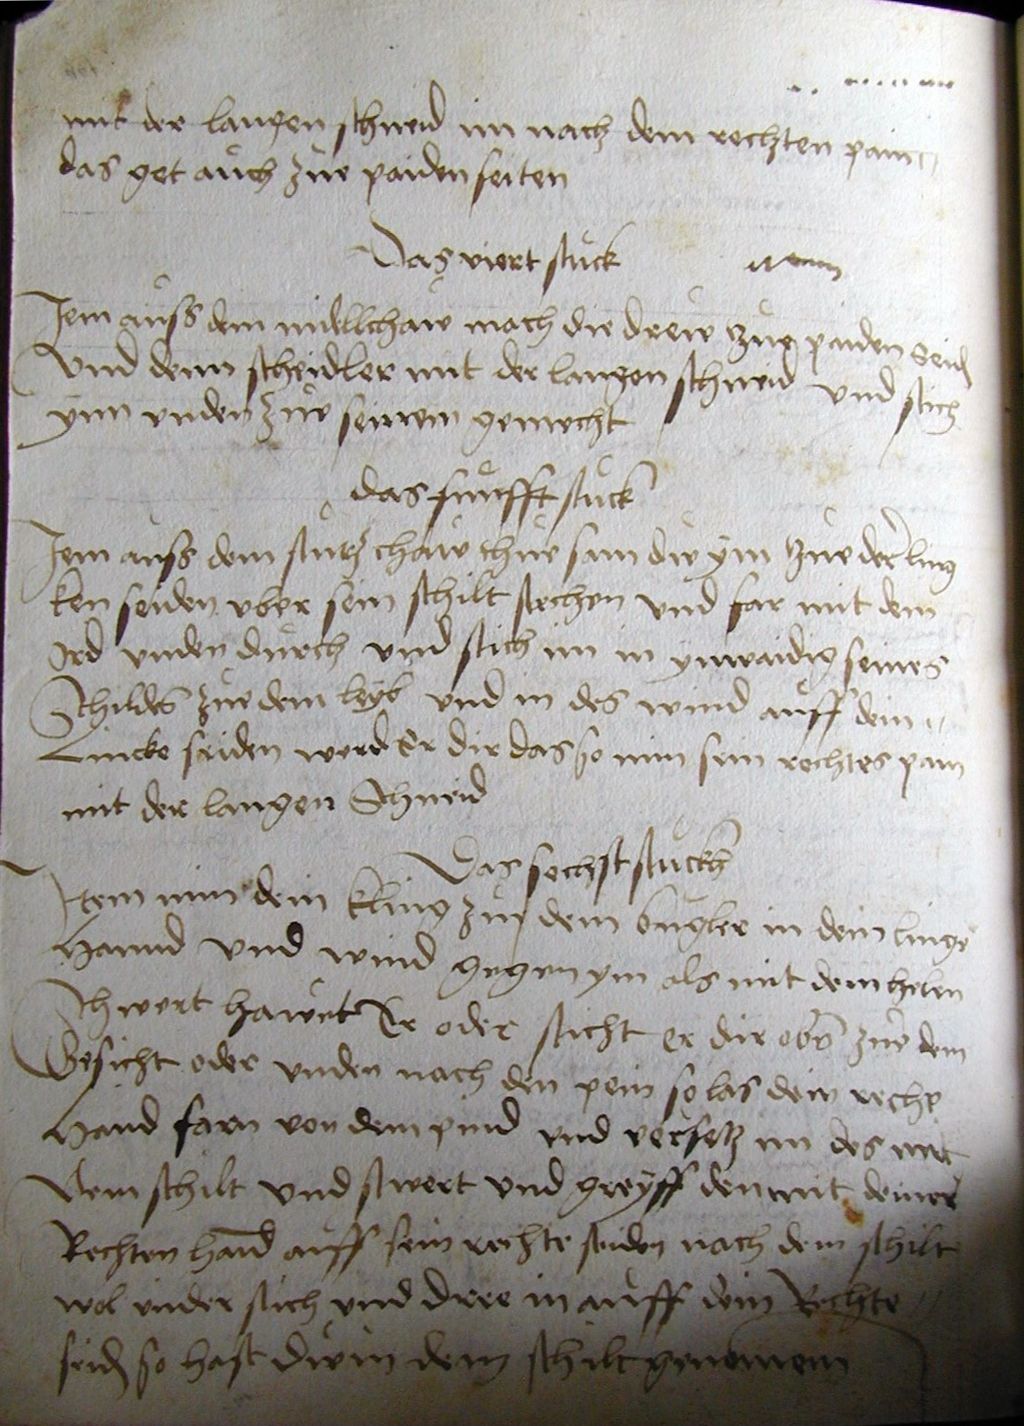 mit der langen schneid im nach dem rechten pain
das get auch zue paiden seiten
Das viert stuck
Jem auss dem mittlhaw mach die drew zue paiden seid
Vnd denn scheidler mit der langen schneid vnd stich
ynn vnden zue seinem gemecht
das funfft stuck
Jem auss dem sturtz haw thue sam du ym zue der ling
ken seiden vber sein schilt stechen vnd far mit dem
Ord vnden durch vnd stich im in ynwaidig seines
Schildes zue dem leyb vnd in des wind auff dein
Lincke seiden werd Er dir das so nim sein rechtes pain
mit der langen Schneid
Das sechst stuckh
Item nim dein kling zu dem bugler in dein linge
Hannd vnd wind gegen ym als mit dem helen
Schwert hawet Er oder sticht er dir obn zue dem
Gesicht oder vnden nach den pein so las dein recht
Hand farn von dem pind vnd versetz im des mit
Dem schilt vnd swert vnd greyff den mit deiner
Rechten hand auff sein rechte seiden nach dem schilt
wol vnder sich vnd dree in auff dein Rechte
seid so hast du im den schilt genomem